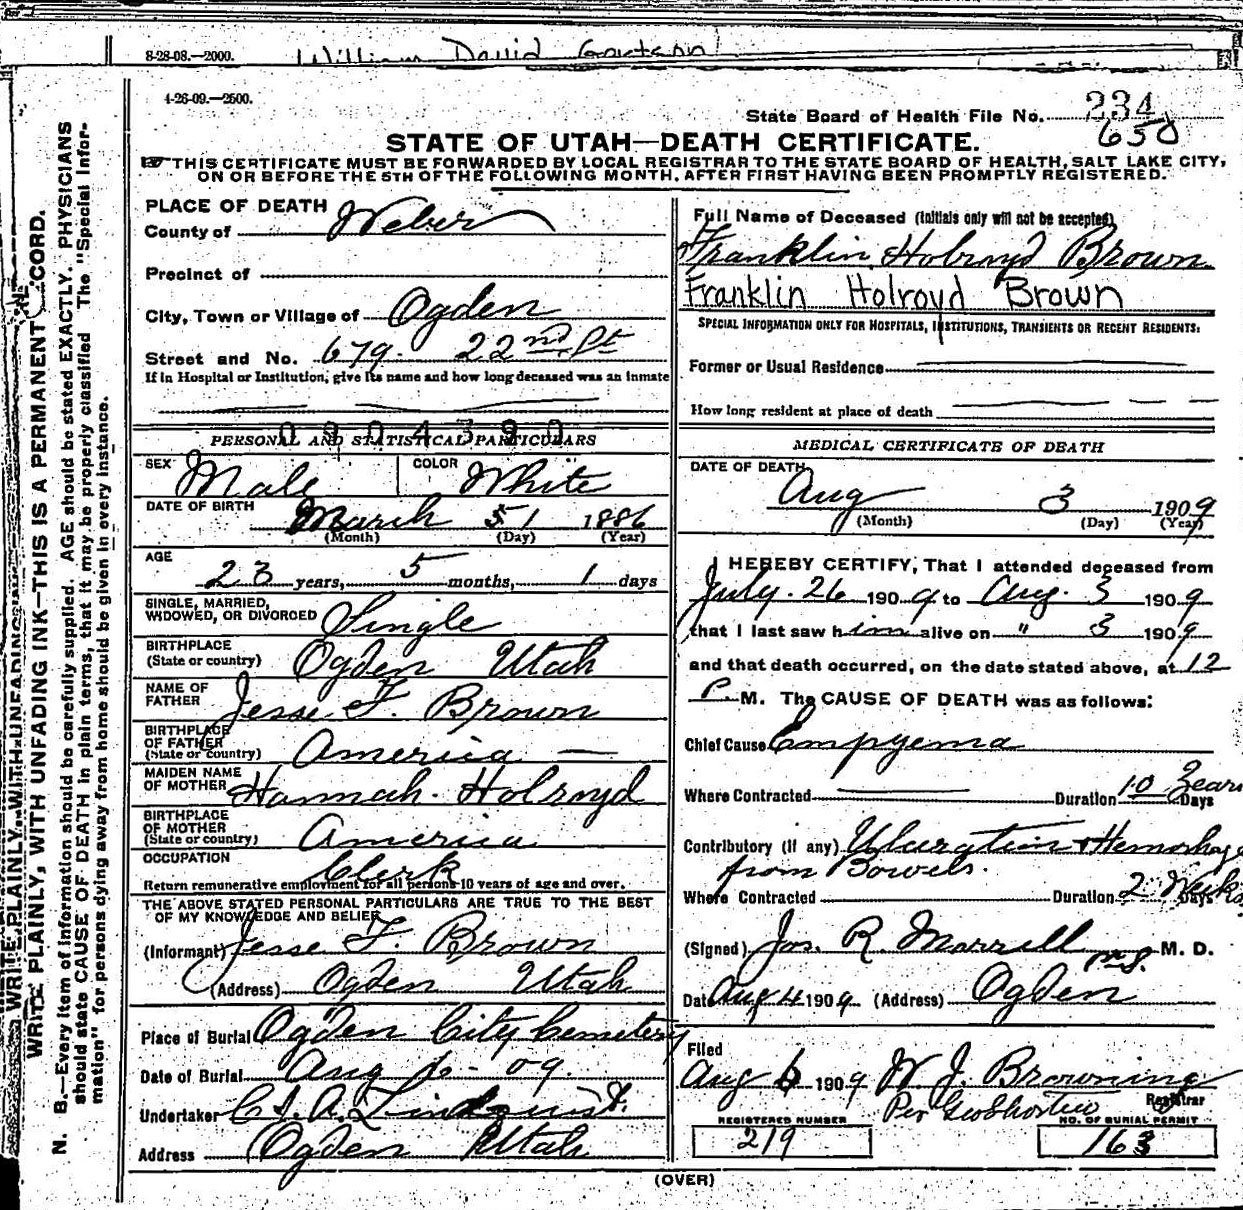 8-28-08.—2000. William David
4-26-09.—2500.
State Board of Health File No. 234
650
STATE OF UTAH—DEATH CERTIFICATE.
THIS CERTIFICATE MUST BE FORWARDED BY LOCAL REGISTRAR TO THE STATE BOARD OF HEALTH, SALT LAKE CITY,
ON OR BEFORE THE 5TH OF THE FOLLOWING MONTH, AFTER FIRST HAVING BEEN PROMPTLY REGISTERED.
WRITE PLAINLY, WITH UNFADING INK—THIS IS A PERMANENT RECORD.
N. B.—Every item of information should be carefully supplied. AGE should be stated EXACTLY. PHYSICIANS
should state CAUSE OF DEATH in plain terms, that it may be properly classified The "Special Infor-
mation" for persons dying away from home should be given in every instance.
PLACE OF DEATH
County of Weber
Precinct of
City, Town or Village of Ogden
Street and No. 679 22nd St
If in Hospital or Institution, give its name and how long deceased was an inmate
0904390
PERSONAL AND STATISTICAL PARTICULARS
SEX Male COLOR White
DATE OF BIRTH March 1 1886
(Month) (Day) (Year)
AGE
23 years, 5 months, 1 days
SINGLE, MARRIED,
WIDOWED, OR DIVORCED Single
BIRTHPLACE
(State or country) Ogden Utah
NAME OF
FATHER Jesse F. Brown
BIRTHPLACE
OF FATHER
(State or country) America
MAIDEN NAME
OF MOTHER Hannah Holroyd
BIRTHPLACE
OF MOTHER
(State or country) America
OCCUPATION Clerk
Return remunerative employment for all persons 10 years of age and over.
THE ABOVE STATED PERSONAL PARTICULARS ARE TRUE TO THE BEST
OF MY KNOWLEDGE AND BELIEF
(Informant) Jesse F. Brown
(Address) Ogden Utah
Place of Burial Ogden City Cemetery
Date of Burial Aug 6 - 09.
Undertaker
Address Ogden Utah
Full Name of Deceased (initials only will not be accepted)
Franklin Holroyd Brown
Franklin Holroyd Brown
SPECIAL INFORMATION ONLY FOR HOSPITALS, INSTITUTIONS, TRANSIENTS OR RECENT RESIDENTS:
Former or Usual Residence
How long resident at place of death
MEDICAL CERTIFICATE OF DEATH
DATE OF DEATH
Aug 3 1909
(Month) (Day) (Year)
I HEREBY CERTIFY, That I attended deceased from
July. 26 1909 to Aug. 3 1909
that I last saw him alive on " 3 1909
and that death occurred, on the date stated above, at 12
P. M. The CAUSE OF DEATH was as follows:
Chief Cause Empyema
Where Contracted Duration 10 Years Days
Contributory (if any) Ulceration + Hemorhage
from Bowels.
Where Contracted Duration 2 Weeks Days
(Signed) Jos. R. Morrell M. D.
Date Aug 4 1909. (Address) Ogden
Filed
Aug 6 1909 W. J. Browning
Per Registrar
REGISTERED NUMBER NO. OF BURIAL PERMIT
219 163
(OVER)